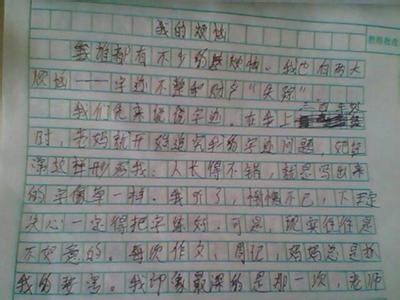 我的烦恼
谁都有不少的烦恼。我也有两大
烦恼——字迹不整和 字“失踪”
我们先来说说字迹。在 上
时，老妈就开始追究我的字迹问题，她曾
这样形容我：人长得不错，就 写出来
的字像草一样。我听了，惭愧不已，下定
决心一定得把字练好。可是，现实往往是
不如意的。每次作文，周记，妈妈总是
我的 。我印象最深的是那一次，老师